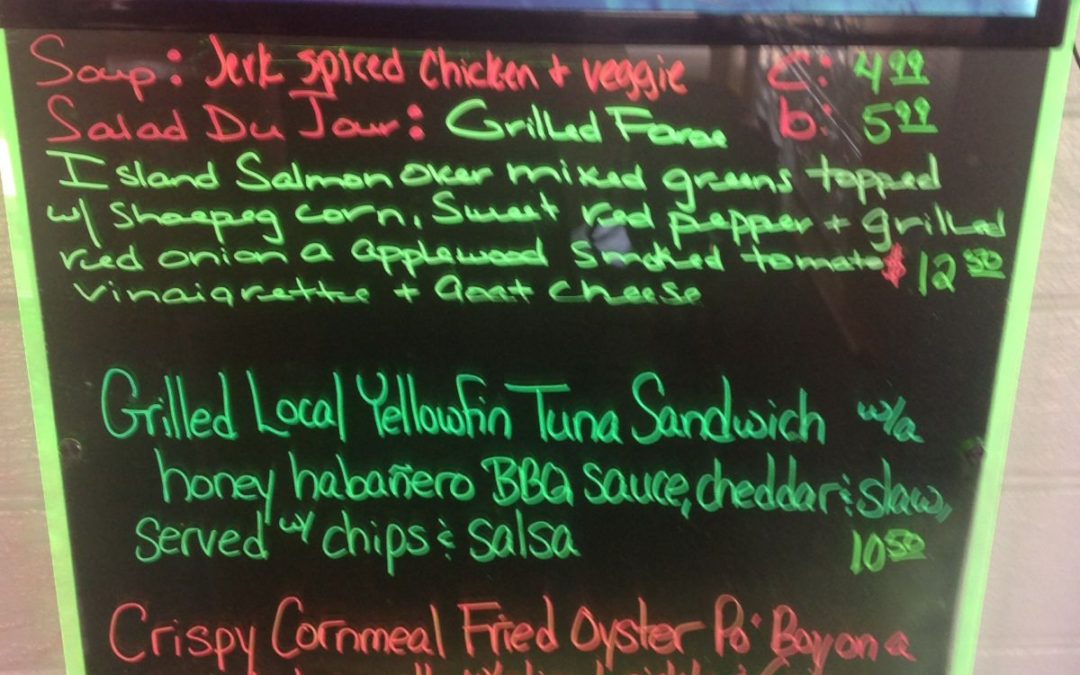 Soup: Jerk spiced chicken + veggie C: 4.99
Salad Du Jour: Grilled Faroe b: 5.99
Island Salmon over mixed greens topped
w/ Shoepeg corn, Sweet red pepper + grilled
red onion a applewood smoked tomato $12.50
vinaigrette + Goat cheese
Grilled Local Yellowfin Tuna Sandwich w/a
honey habañero BBQ sauce, cheddar & slaw,
served w/ chips & salsa 10.50
Crispy Cornmeal Fried Oyster Po' Boy on a